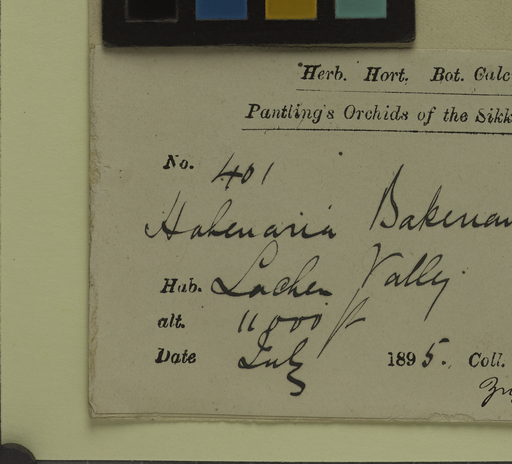 Herb. Hort. Bot. Calc
Pantling's Orchids of the Sikk
No. 401
Habenaria Bakerian
Hab. Lachen Valley.
alt. 11000 ft
Date July 1895. Coll.